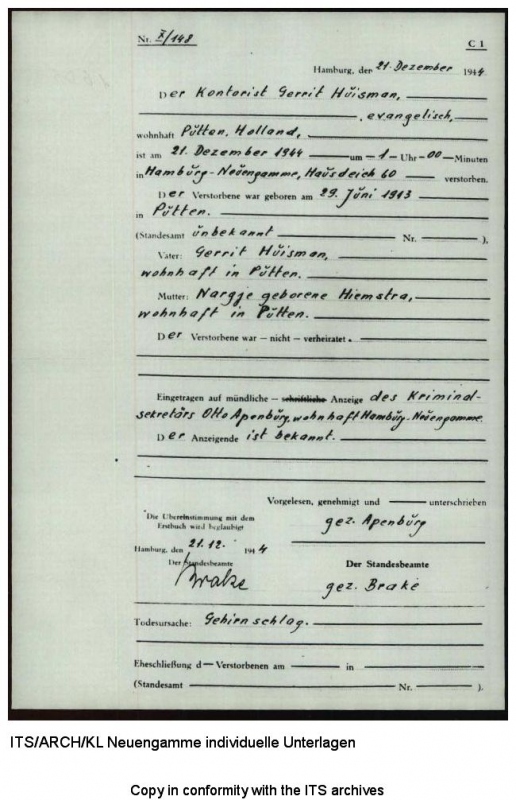 Nr. X/148
C 1
Hamburg, den 21. Dezember 1944
Der Kontorist Gerrit Huisman,
, evangelisch,
wohnhaft Putten, Holland,
ist am 21. Dezember 1944 um 1 Uhr 00 Minuten
in Hamburg-Neuengamme, Hausdeich 60 verstorben.
Der Verstorbene war geboren am 29. Juni 1913
in Putten.
(Standesamt unbekannt Nr. ).
Vater: Gerrit Huisman,
wohnhaft in Putten.
Mutter: Nargje geborene Hiemstra,
wohnhaft in Putten.
Der Verstorbene war – nicht – verheiratet.
Eingetragen auf mündliche – schriftliche Anzeige des Kriminal-
sekretärs Otto Apenburg, wohnhaft Hamburg-Neuengamme.
Der Anzeigende ist bekannt.
Vorgelesen, genehmigt und unterschrieben
Die Übereinstimmung mit dem
Erstbuch wird beglaubigt
gez. Apenburg
Hamburg, den 21.12. 1944
Der Standesbeamte
Der Standesbeamte
Brake
gez. Brake
Todesursache: Gehirnschlag.
Eheschließung d Verstorbenen am in
(Standesamt Nr. ).
ITS/ARCH/KL Neuengamme individuelle Unterlagen
Copy in conformity with the ITS archives